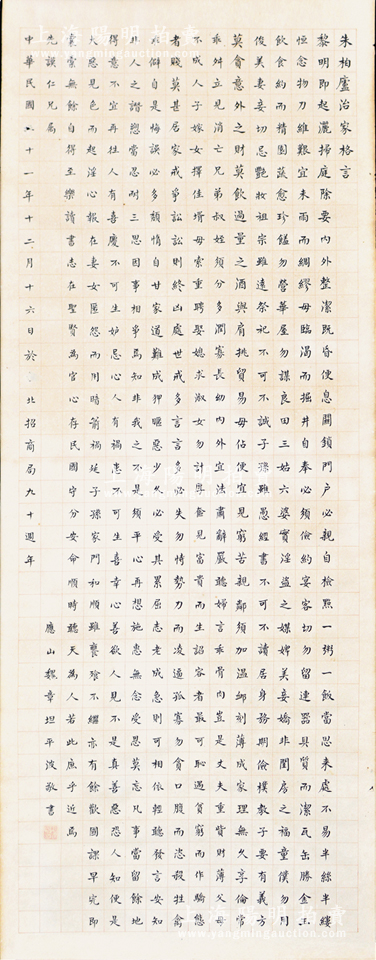 朱柏廬治家格言
黎明即起灑掃庭除要內外整潔既昏便息關鎖門戶必親自檢點一粥一飯當思來處不易半絲半縷
恒念物力維艱宜未雨而綢繆毋臨渴而掘井自奉必須儉約宴客切勿留連器具質而潔瓦缶勝金玉
飲食約而精園蔬愈珍饈勿營華屋勿謀良田三姑六婆實淫盜之媒婢美妾嬌非閨房之福童僕勿用
俊美妻妾切忌艷妝祖宗雖遠祭祀不可不誠子孫雖愚經書不可不讀居身務期儉樸教子要有義方
莫貪意外之財莫飲過量之酒與肩挑貿易毋佔便宜見窮苦親鄰須加溫卹刻薄成家理無久享倫常
乖舛立見消亡兄弟叔姪須分多潤寡長幼內外宜法肅辭嚴聽婦言乖骨肉豈是丈夫重貲財薄父母
不成人子嫁女擇佳壻毋索重聘娶媳求淑女勿計厚奩見富貴而生諂容者最可恥遇貧窮而作驕態
者賤莫甚居家戒爭訟訟則終凶處世戒多言言多必失勿恃勢力而凌逼孤寡勿貪口腹而恣殺牲禽
乖僻自是悔誤必多頹惰自甘家道難成狎暱惡少久必受其累屈志老成急則可相依輕聽發言安知
非人之譖愬當忍耐三思因事相爭焉知非我之不是須平心再想施惠無念受恩莫忘凡事當留餘地
得意不宜再往人有喜慶不可生妒忌心人有禍患不可生喜幸心善欲人見不是真善惡恐人知便是
大惡見色而起淫心報在妻女匿怨而用暗箭禍延子孫家門和順雖饔飧不繼亦有餘歡國課早完即
囊橐無餘自得至樂讀書志在聖賢為官心存民國守分安命順時聽天為人若此庶乎近焉
先仁兄屬
中華民國十一年十二月十六日於北招商局九十週年 應山魏章坦平波敬書